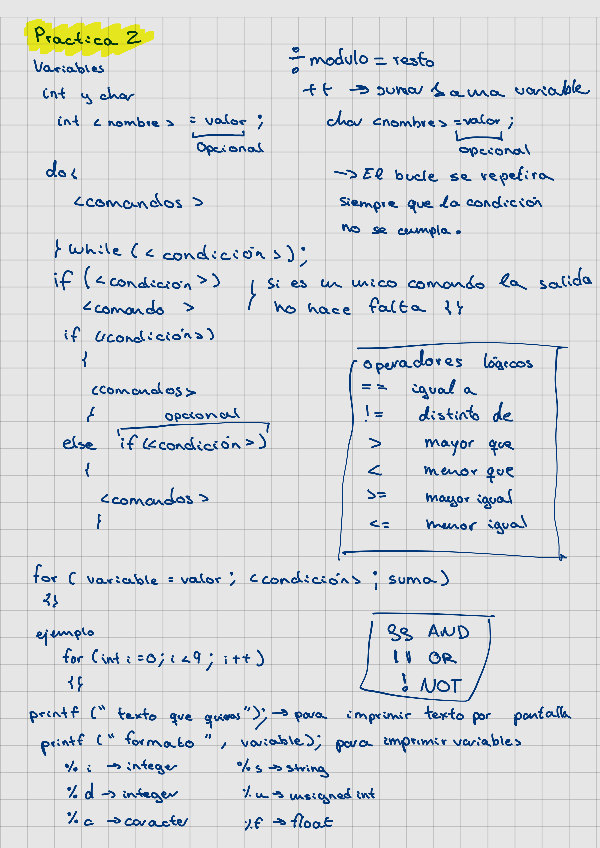 Practica 2
Variables
int y char
int <nombre> = valor ;
Opcional
÷ modulo = resto
++ → suma 1 a una variable
char <nombre> = valor ;
opcional
do{
<comandos>
} while (<condición>);
→ El bucle se repetira
siempre que la condición
no se cumpla.
if (<condición>)
<comando >
} si es un unico comando la salida
no hace falta {}
if (<condición>)
{
<comandos>
}
opcional
else if(<condición>)
{
<comandos>
}
operadores lógicos
== igual a
!= distinto de
> mayor que
< menor que
>= mayor igual
<= menor igual
for ( variable = valor ; <condición> ; suma)
{}
ejemplo
for (int i =0; i<9 ; i++)
{}
&& AND
|| OR
! NOT
printf (" texto que quieras"); → para imprimir texto por pantalla
printf (" formato " , variable); para imprimir variables
% i → integer
% d → integer
% c → caracter
% s → string
% u → unsigned int
%f → float